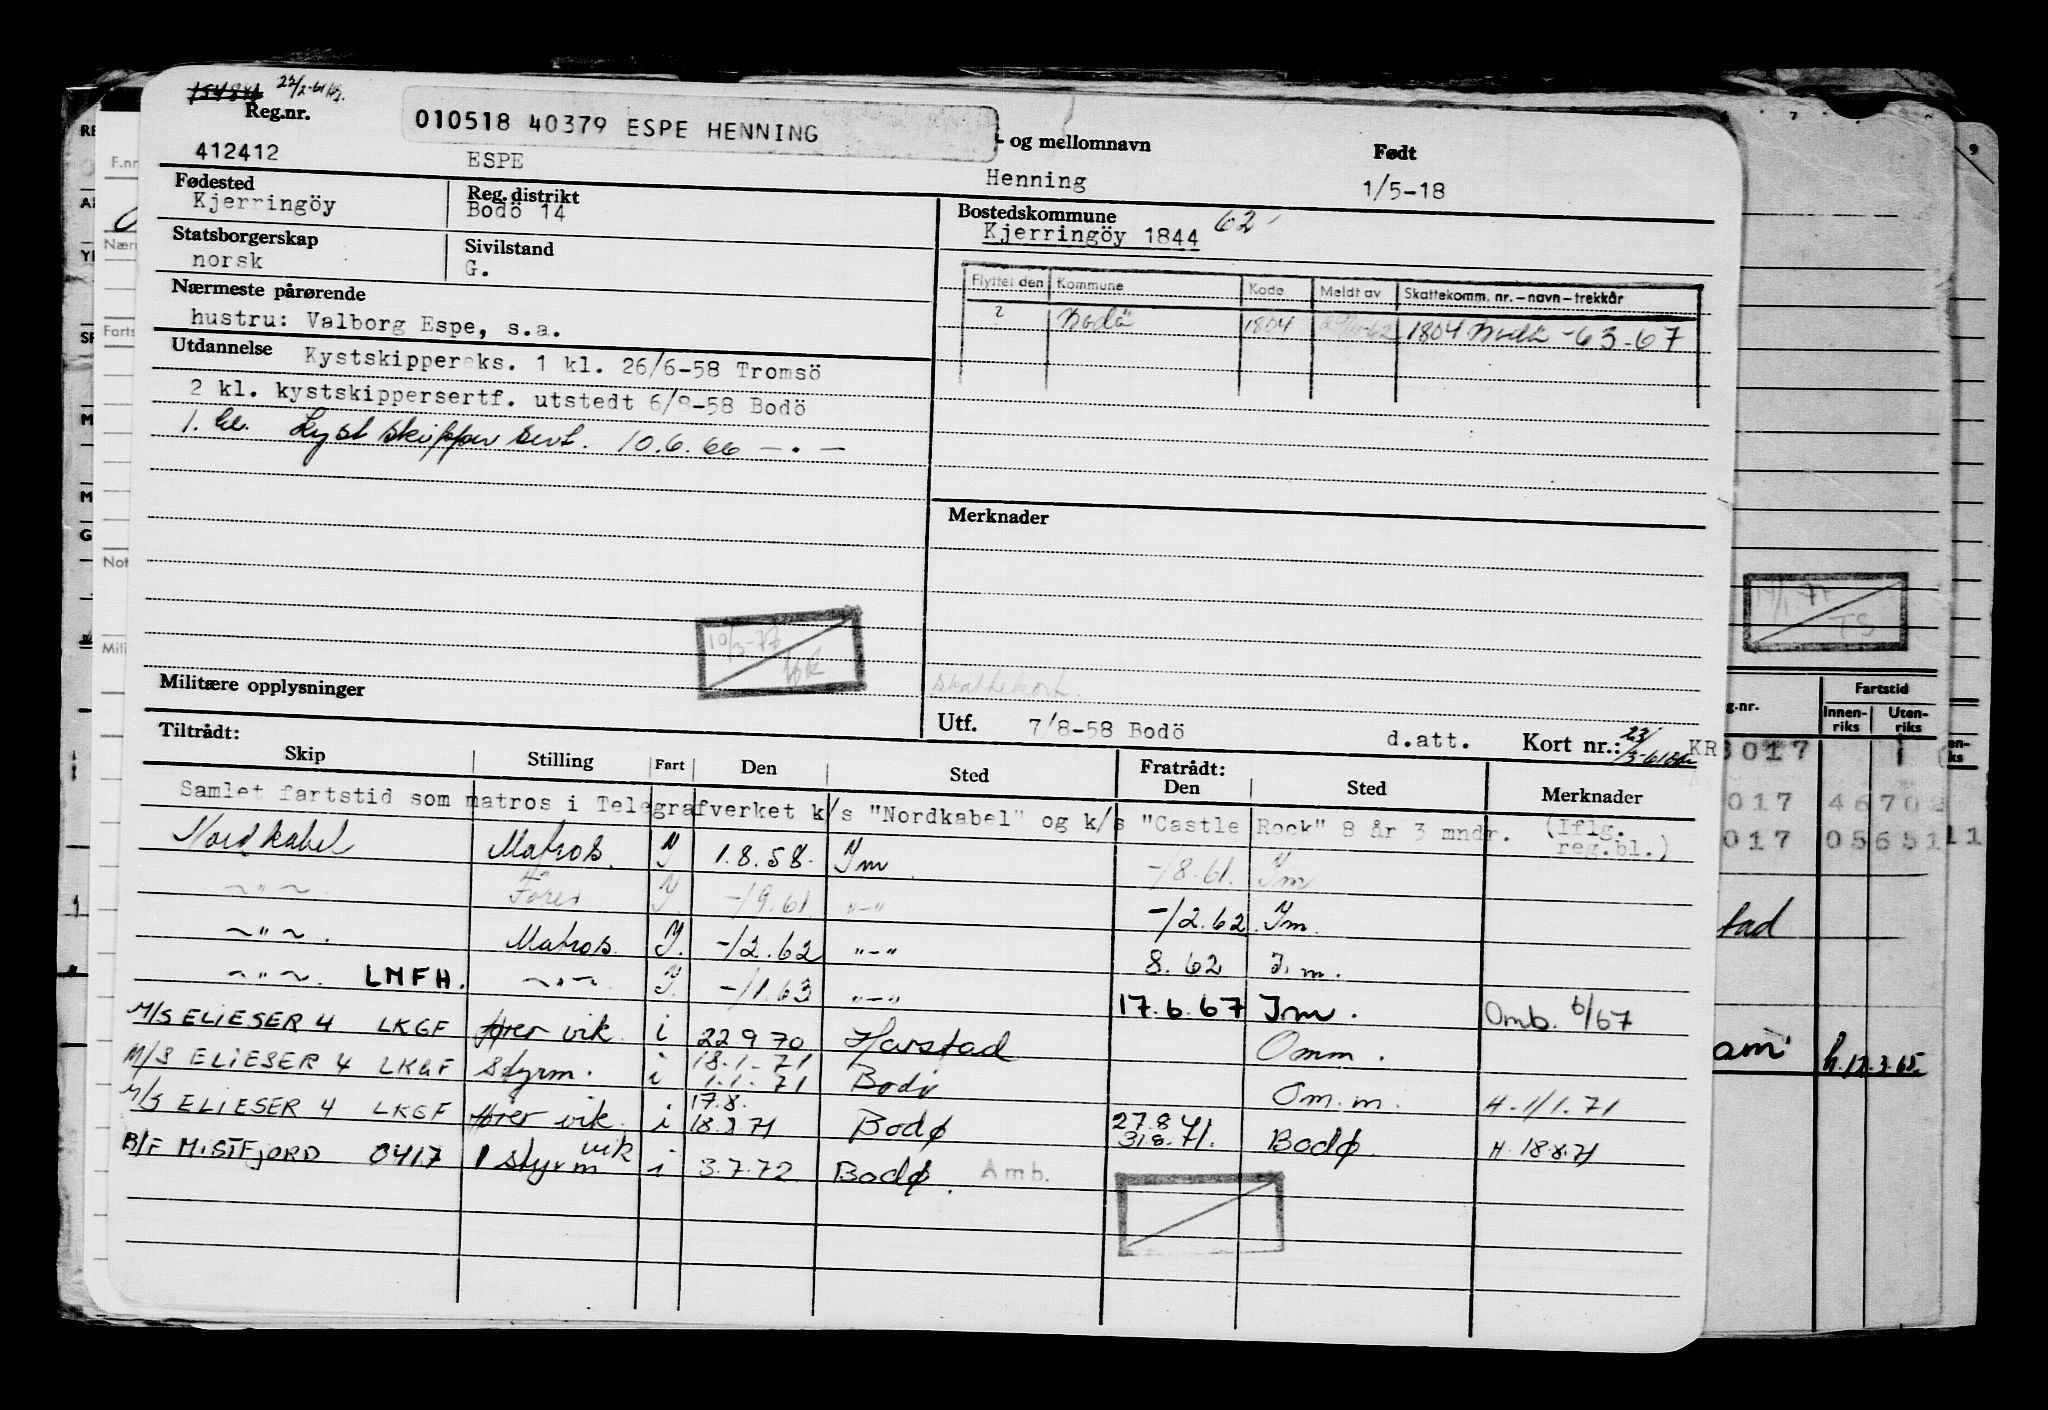 22/2-61
Reg.nr.
010518 40379 ESPE HENNING
- og mellomnavn
Født
412412 ESPE Henning 1/5-18
Fødested
Kjerringöy
Reg. distrikt
Bodö 14
Bostedskommune 62
Kjerringöy 1844
Statsborgerskap
norsk
Sivilstand
G.
Flyttet den Kommune Kode Meldt av Skattekomm. nr. – navn – trekkår
? Bodö 1804 1804 Bodö -63-67
Nærmeste pårørende
hustru: Valborg Espe, s.a.
Utdannelse Kystskippereks. 1 kl. 26/6-58 Tromsö
2 kl. kystskippersertf. utstedt 6/8-58 Bodö
1. kl. Kyst skipper sert. 10.6.66 — . —
Merknader
Militære opplysninger
Skattekort.
Utf. 7/8-58 Bodö d.att. Kort nr.: KR
Tiltrådt:
Skip Stilling Fart Den Sted Fratrådt: Den Sted Merknader
Samlet fartstid som matros i Telegrafverket k/s "Nordkabel" og k/s "Castle Rock" 8 år 3 mndr. (Iflg. reg.bl.)
Nordkabel Matros. I 1.8.58. Im -/8.61. Im
~"~ Fører I. -/9.61. "-" -/2.62 Im.
~"~. Matros. I. -/2.62 "-" 8.62 I.m.
~"~. LMFH. ~"~ I. -/1.63 "-" 17.6.67 I.m. Omb. 6/67
M/S ELIESER 4 LKGF fører vik. i 22 9 70 Harstad Omm.
M/S ELIESER 4 LKGF Styrm. i 18.1.71 1.1.71 Bodø Om.m. H. 1/1.71
M/S ELIESER 4 LKGF fører vik. i 17.8. Bodø 27.8 31.8.71. Bodø. H. 18.8.71
B/F MISTFJORD 0417 1 styrm vik i 3.7.72 Bodø. Amb.
F.nr
Nærm
Farts
Not
Mili
TS
g.nr.
Fartstid
Innenriks
Utenriks
017
017
017
tad
am